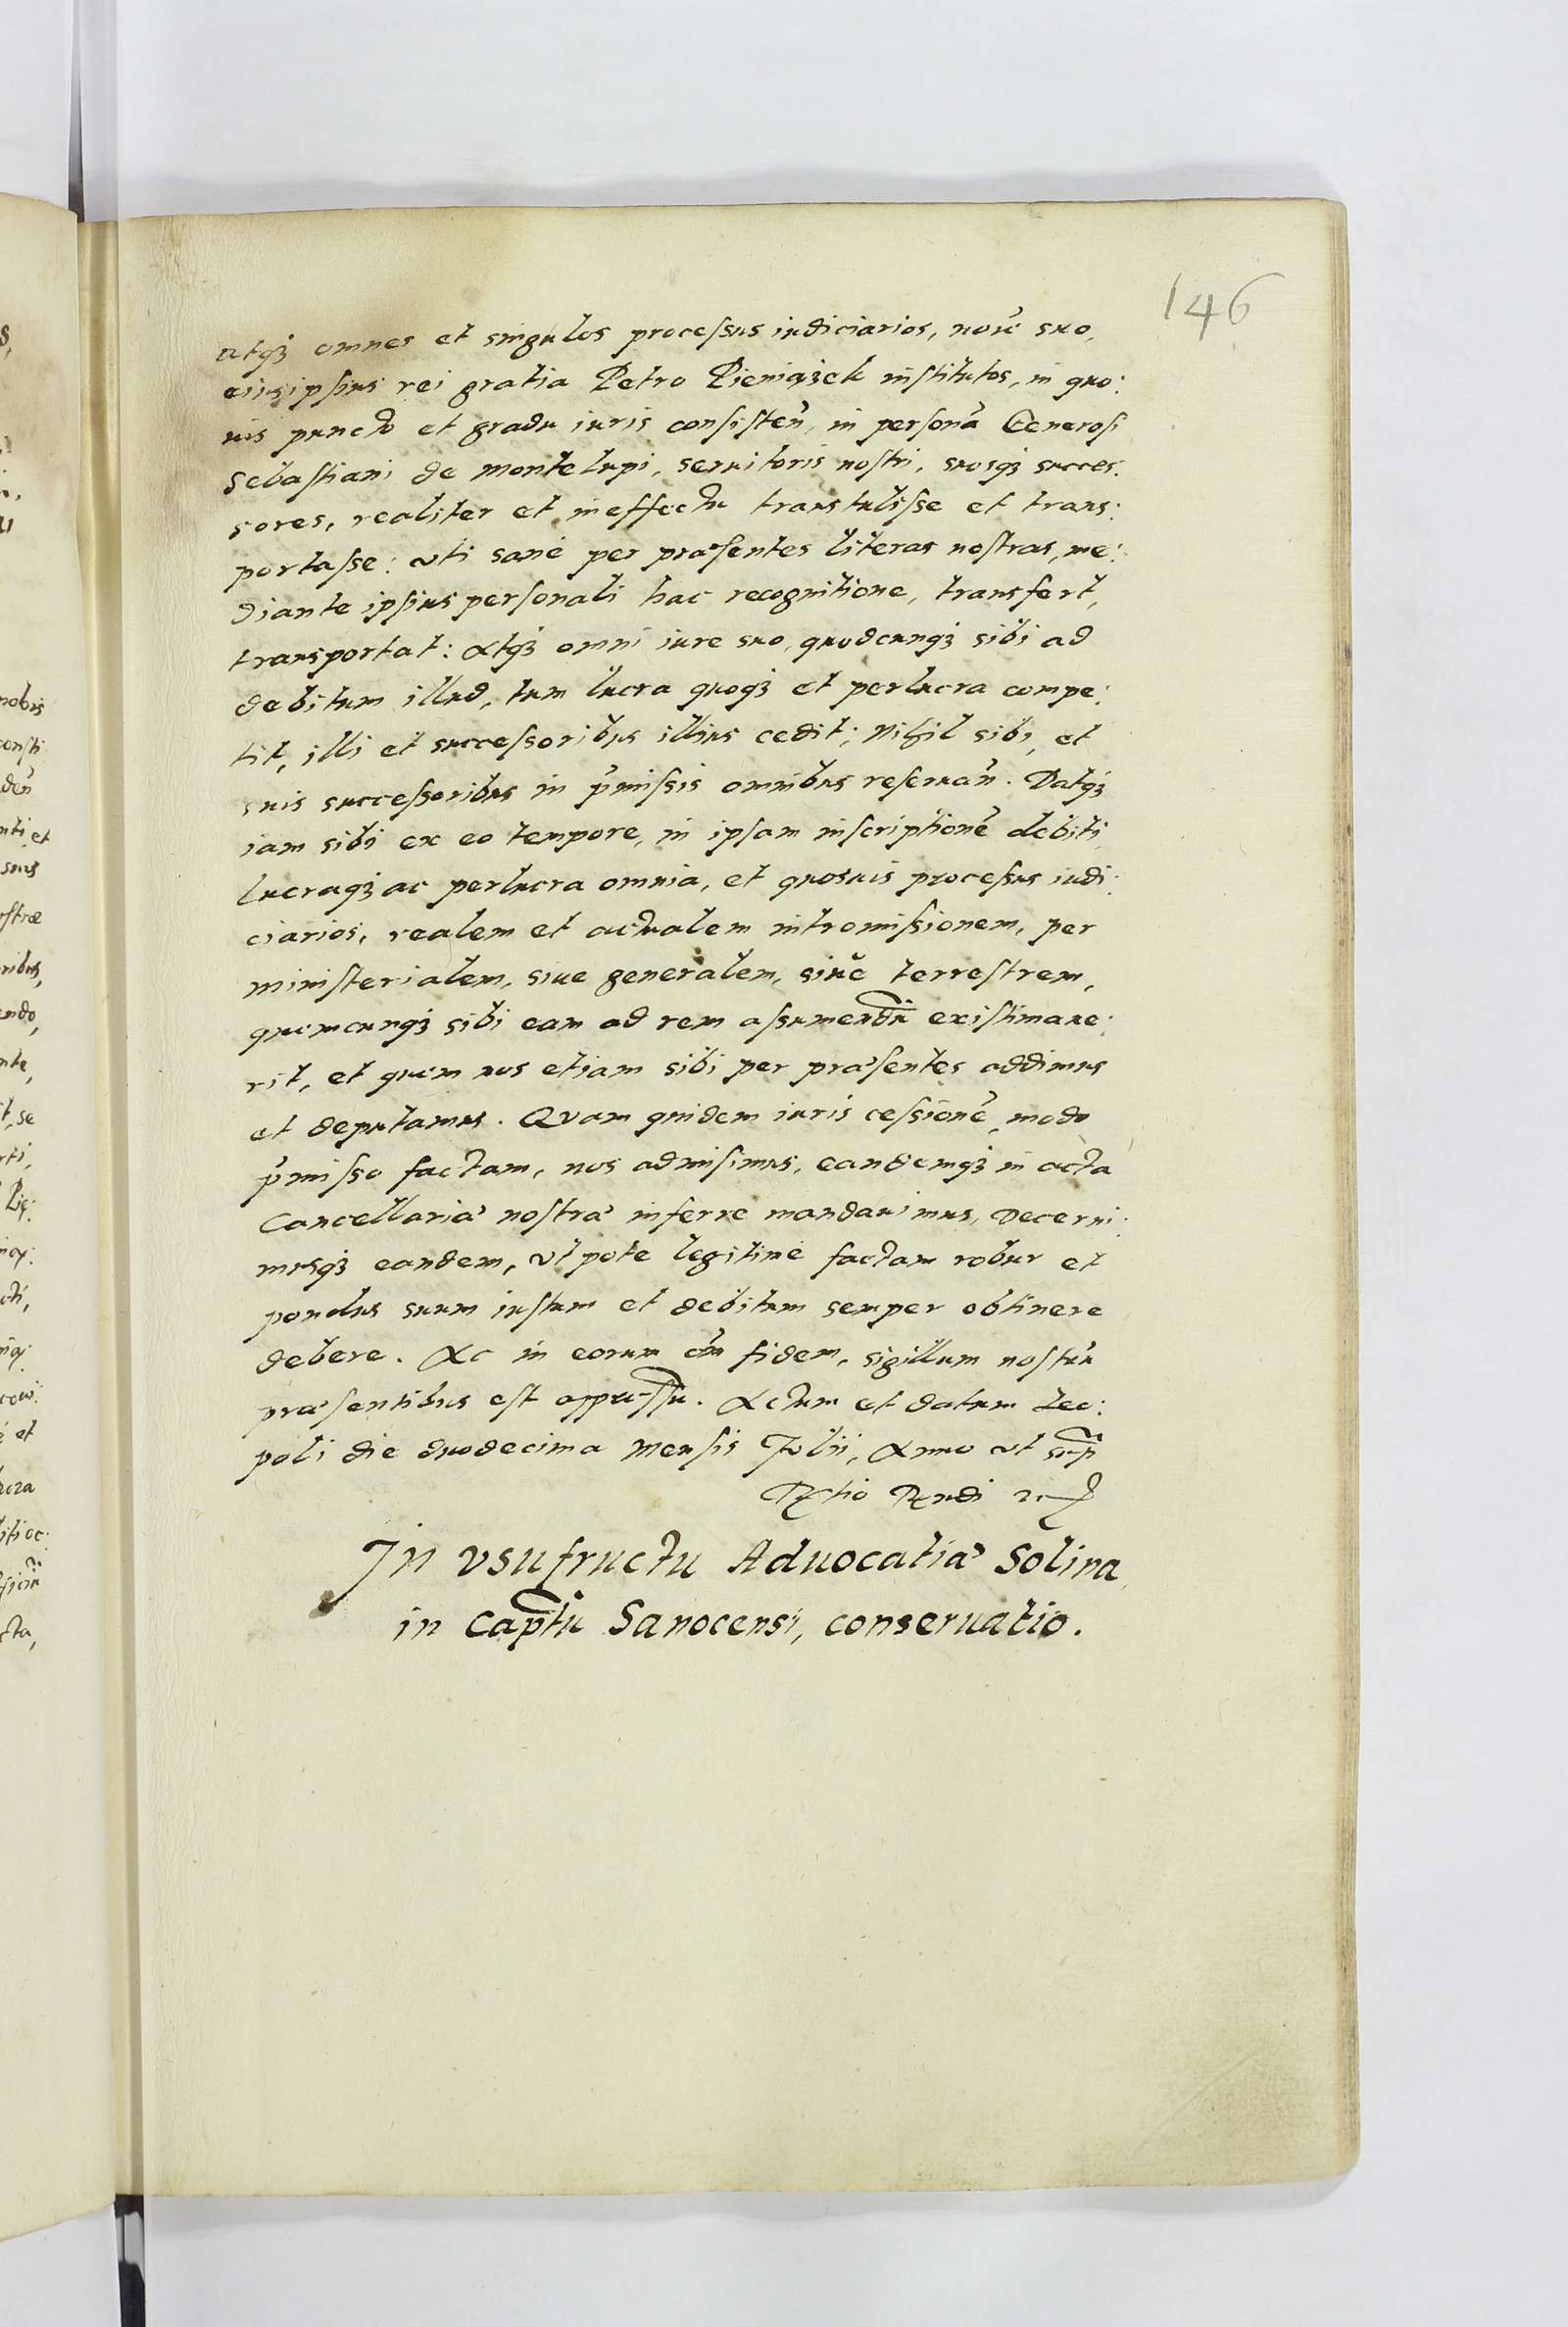 146
atqȝ omnes et singulos processus iudiciarios, noīe suo,
eiusipsius rei gratia Petro Pieniążek institutos, in quo:
uis puncto et gradu iuris consisteñ, in personã Generosi
Sebastiani de Montelupi, seruitoris nostri, suosqȝ succes:
sores, realiter et in effectu transtulisse et trans:
portasse: uti sane per præsentes literas nostras, me:
diante ipsius personali hac recognitione, transfert,
transportat: Atqȝ omni iure suo, quodcunqȝ sibi ad
debitum illud, tum lucra quoqȝ et perlucra compe:
tit, illi et successoribus illius cedit; Nihil sibi, et
suis successoribus in p̃missis omnibus reseruañ. Datqȝ
iam sibi ex eo tempore, in ipsam inscriptionẽ debiti
lucraqȝ ac perlucra omnia, et quosuis processus iudi:
ciarios, realem et actualem intromissionem, per
ministerialem, siue generalem, siue terrestrem,
quemcunqȝ sibi eam ad rem assumendũ existimaue:
rit, et quem nos etiam sibi per præsentes addimus
et deputamus. Quam quidem iuris cessionẽ, modo
p̃misso factam, nos admisimus, eandemqȝ in acta
Cancellariæ nostræ inferre mandauimus, Decerni:
musqȝ eandem, utpote legitime factam robur et
pondus suum iustum et debitum semper obtinere
debere. Ac in eorum õm fidem, sigillum nostrũ
præsentibus est appressũ. Actum et datum Leo:
poli die duodecima Mensis Julii, Anno ut sup̃
In vsufructu Aduocatiæ Solina,
in Capt̃u Sanocensi, conseruatio.